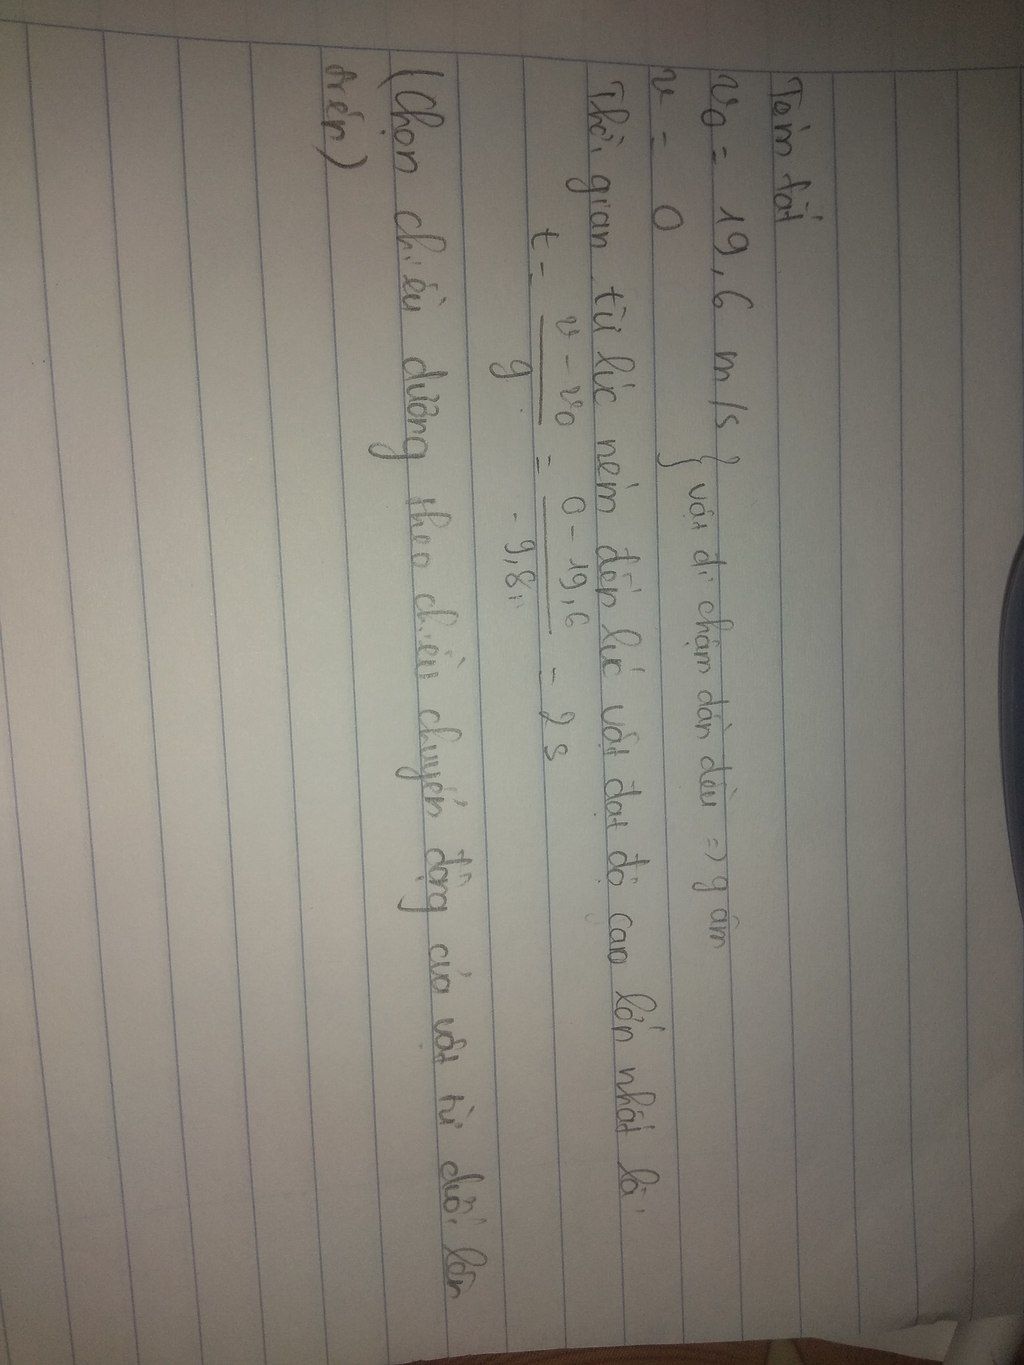 Tóm tắt
v0 = 19,6 m/s
v = 0 } vật đi chậm dần đều => g âm
Thời gian từ lúc ném đến lúc vật đạt độ cao lớn nhất là
t = \frac{v - v0}{g} = \frac{0 - 19,6}{-9,8} = 2 s
(Chọn chiều dương theo chiều chuyển động của vật từ dưới lên
trên)